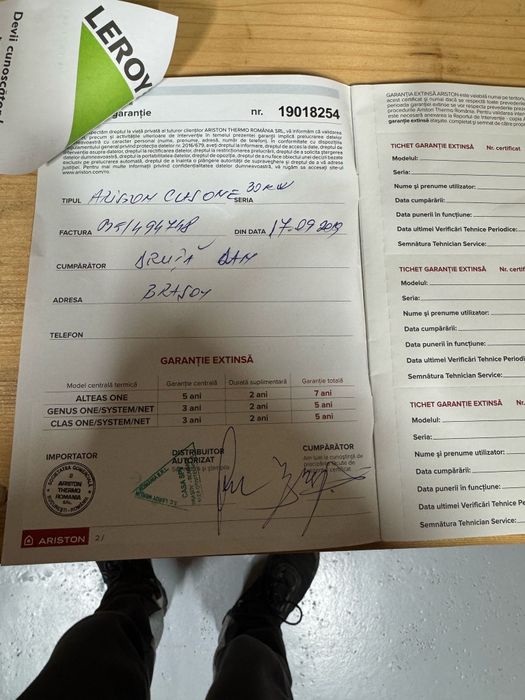 Devii cunoscăto
LEROY
garanție nr. 19018254
respectăm dreptul la viață privată al tuturor clienților ARISTON THERMO ROMÂNIA SRL, vă informăm că validarea
precum și activitățile ulterioare de intervenție în temeiul prezentei garanții implică prelucrarea datelor
dumneavoastră cu caracter personal (nume, prenume, adresă, număr de telefon), în conformitate cu dispozițiile
Regulamentului general privind protecția datelor nr. 2016/679, aveți dreptul la informare, dreptul de acces la date, dreptul la
intervenție asupra datelor, dreptul la rectificarea datelor, dreptul la restricționarea prelucrării, dreptul de a solicita ștergerea
datelor dumneavoastră, dreptul la portabilitatea datelor, dreptul de opoziție, dreptul de a nu face obiectul unei decizii bazate
exclusiv pe prelucrarea automată, dreptul de a înainta o plângere autorității de supraveghere și dreptul de a vă adresa
justiției. Pentru mai multe informații privind confidențialitatea datelor dumneavoastră, vă rugăm să accesați site-ul
www.ariston.ro.
TIPUL ARISTON CLAS ONE 30 KW SERIA
FACTURA 035/494748 DIN DATA 17.09.2019
CUMPĂRĂTOR DAN
ADRESA BRAȘOV
TELEFON
GARANȚIE EXTINSĂ
Model centrală termică Garanție centrală Durată suplimentară Garanție totală
ALTEAS ONE 5 ani 2 ani 7 ani
GENUS ONE/SYSTEM/NET 3 ani 2 ani 5 ani
CLAS ONE/SYSTEM/NET 3 ani 2 ani 5 ani
IMPORTATOR
SOCIETATEA COMERCIALĂ
2
ARISTON
THERMO
ROMANIA
SRL
BUCUREȘTI - ROMÂNIA
DISTRIBUITOR
AUTORIZAT
CUMPĂRĂTOR
Am luat la cunoștință de
ARISTON 2 /
GARANȚIA EXTINSĂ ARISTON este valabilă numai pe teritoriul
garanție extinsă
TICHET GARANȚIE EXTINSĂ Nr. certificat
Modelul:
Seria:
Nume și prenume utilizator:
Data cumpărării:
Data punerii în funcțiune:
Data ultimei Verificări Tehnice Periodice:
Semnătura Tehnician Service:
TICHET GARANȚIE EXTINSĂ Nr. certif
Modelul:
Seria:
Nume și prenume utilizator:
Data cumpărării:
Data punerii în funcțiune:
Data ultimei Verificări Tehnice Periodi
Semnătura Tehnician Service:
TICHET GARANȚIE EXTINSĂ Nr.
Modelul:
Seria:
Nume și prenume utilizator:
Data cumpărării:
Data punerii în funcțiune:
Data ultimei Verificări Tehnice Pe
Semnătura Tehnician Service: